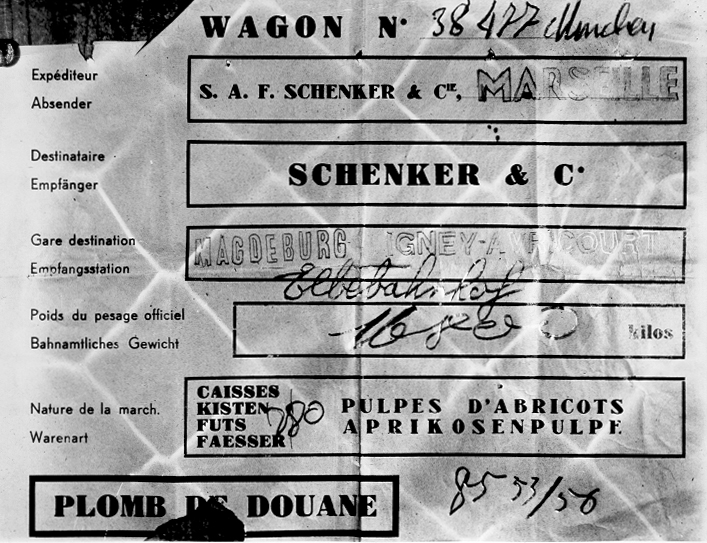 WAGON N° 38477 München
Expéditeur
Absender
S. A. F. SCHENKER & CIE, MARSEILLE
Destinataire
Empfänger
SCHENKER & C°
Gare destination
Empfangsstation
MAGDEBURG IGNEY-AVRICOURT
Elbebahnhof
Poids du pesage officiel
Bahnamtliches Gewicht
kilos
Nature de la march.
Warenart
CAISSES
KISTEN
FUTS
FAESSER
280
PULPES D'ABRICOTS
APRIKOSENPULPE
PLOMB DE DOUANE
85 53/56